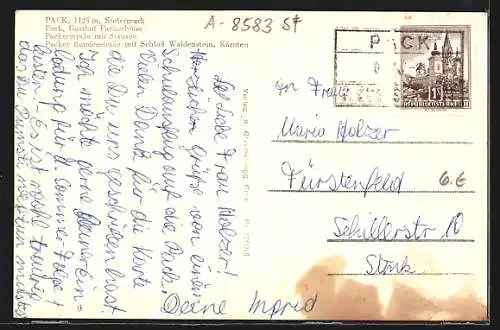 PACK, 1125 m, Steiermark
Pack, Gasthof Packerhöhe
Packerstraße mit Stausee
Packer Bundesstraße mit Schloß Waldenstein, Kärnten
A - 8583 St
PACK
1 S
REPUBLIK ÖSTERREICH
6.€
Frau
Maria Holzer
Fürstenfeld
Schillerstr 10
Stmk
Liebe Frau Holzer!
Herzliche Grüße von einem
Schulausflug auf die Pack.
Vielen Dank für die Karte
die Du uns geschrieben hast.
Ich möchte gerne
für 1 Sommer
Es ist wohl traurig
daß Du
Deine Ingrid